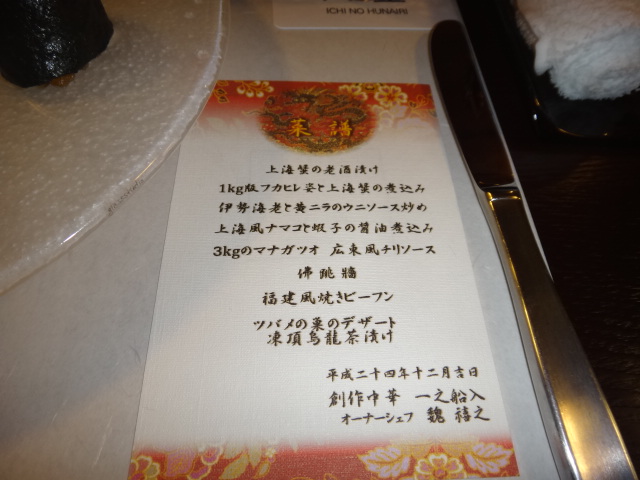 ICHI NO HUNAIRI
菜譜
上海蟹の老酒漬け
1kg版フカヒレ姿と上海蟹の煮込み
伊勢海老と黄ニラのウニソース炒め
上海風ナマコと蝦子の醤油煮込み
3kgのマナガツオ 広東風チリソース
佛跳牆
福建風焼きビーフン
ツバメの巣のデザート
凍頂烏龍茶漬け
平成二十四年十二月吉日
創作中華 一之船入
オーナーシェフ 魏 禧之